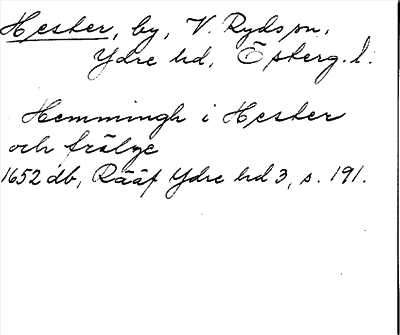 Hester, by, V. Ryds sn,
Ydre hd, Österg. l.
Hemmingh i Hester
och frälge
1652 db, Rääf Ydre hd 3, s. 191.